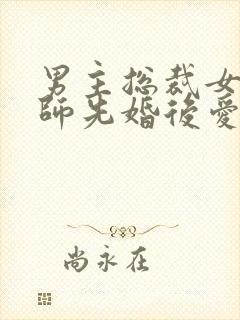 男主总裁女
師先婚後愛
尚永在